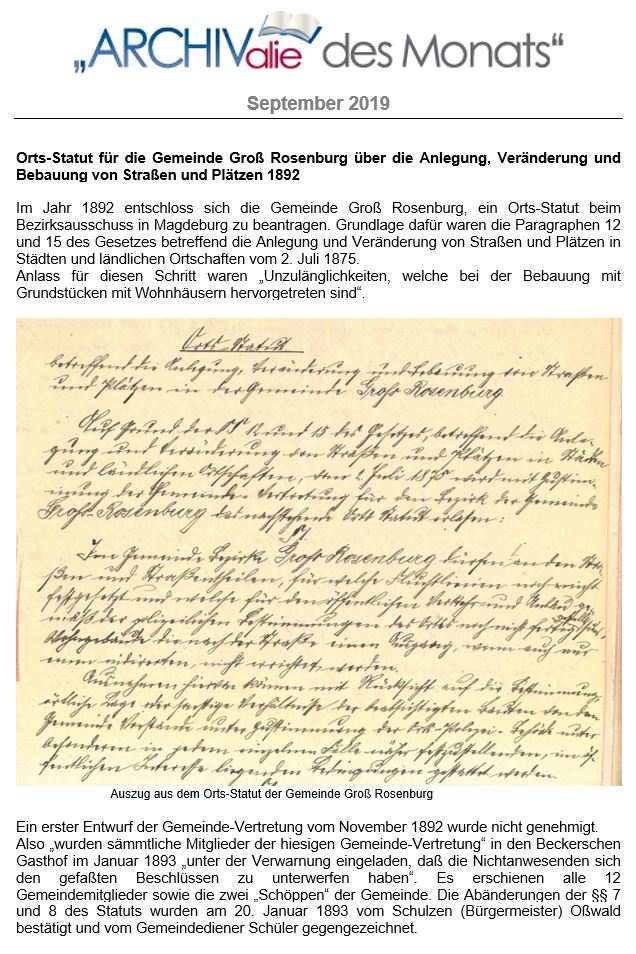 „ARCHIValie des Monats“
September 2019
Orts-Statut für die Gemeinde Groß Rosenburg über die Anlegung, Veränderung und
Bebauung von Straßen und Plätzen 1892
Im Jahr 1892 entschloss sich die Gemeinde Groß Rosenburg, ein Orts-Statut beim
Bezirksausschuss in Magdeburg zu beantragen. Grundlage dafür waren die Paragraphen 12
und 15 des Gesetzes betreffend die Anlegung und Veränderung von Straßen und Plätzen in
Städten und ländlichen Ortschaften vom 2. Juli 1875.
Anlass für diesen Schritt waren „Unzulänglichkeiten, welche bei der Bebauung mit
Grundstücken mit Wohnhäusern hervorgetreten sind“.
Orts-Statut
betreffend die Anlegung, Veränderung und Bebauung von Straßen
und Plätzen in der Gemeinde Gross Rosenburg
Auf Grund der §§ 12 und 15 des Gesetzes, betreffend die Anle-
gung und Veränderung von Straßen und Plätzen in Städten
und ländlichen Ortschaften, vom 2. Juli 1875 wird mit Zustim-
mung der Gemeinde-Vertretung für den Bezirk der Gemeinde
Gross-Rosenburg das nachstehende Orts Statut erlassen:
§ 1.
Im Gemeinde Bezirke Gross Rosenburg dürfen an den Stra-
ßen und Straßentheilen, für welche Fluchtlinien noch nicht
festgesetzt und welche für den öffentlichen Verkehr und Anbau ge-
mäß der polizeilichen Bestimmungen des Orts noch nicht fertig
Wohngebäude die nach der Straße einen Ausgang, wenn auch nur
einen indirecten, nicht errichtet werden.
Ausnahmen hiervon können mit Rücksicht auf die Bestimmung,
örtliche Lage oder sonstige Verhältnisse der beabsichtigten Bauten von dem
Gemeinde Vorstande unter Zustimmung der Orts-Polizei-Behörde unter
besonderen in jedem einzelnen Falle näher festzustellenden, im öf-
fentlichen Interesse liegenden Bedingungen gestattet werden.
Auszug aus dem Orts-Statut der Gemeinde Groß Rosenburg
Ein erster Entwurf der Gemeinde-Vertretung vom November 1892 wurde nicht genehmigt.
Also „wurden sämmtliche Mitglieder der hiesigen Gemeinde-Vertretung“ in den Beckerschen
Gasthof im Januar 1893 „unter der Verwarnung eingeladen, daß die Nichtanwesenden sich
den gefaßten Beschlüssen zu unterwerfen haben“. Es erschienen alle 12
Gemeindemitglieder sowie die zwei „Schöppen“ der Gemeinde. Die Abänderungen der §§ 7
und 8 des Statuts wurden am 20. Januar 1893 vom Schulzen (Bürgermeister) Oßwald
bestätigt und vom Gemeindediener Schüler gegengezeichnet.